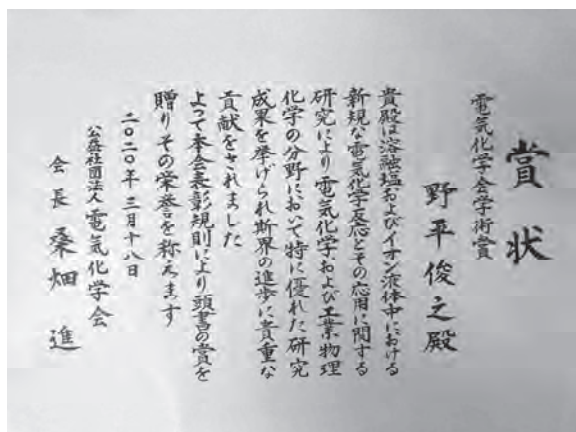 賞状
電気化学会学術賞
野平俊之殿
貴殿は溶融塩およびイオン液体中における
新規な電気化学反応とその応用に関する
研究により電気化学および工業物理
化学の分野において特に優れた研究
成果を挙げられ斯界の進歩に貴重な
貢献をされました
よって本会表彰規則により頭書の賞を
贈りその栄誉を称えます
二〇二〇年三月十八日
公益社団法人電気化学会
会長桑畑進